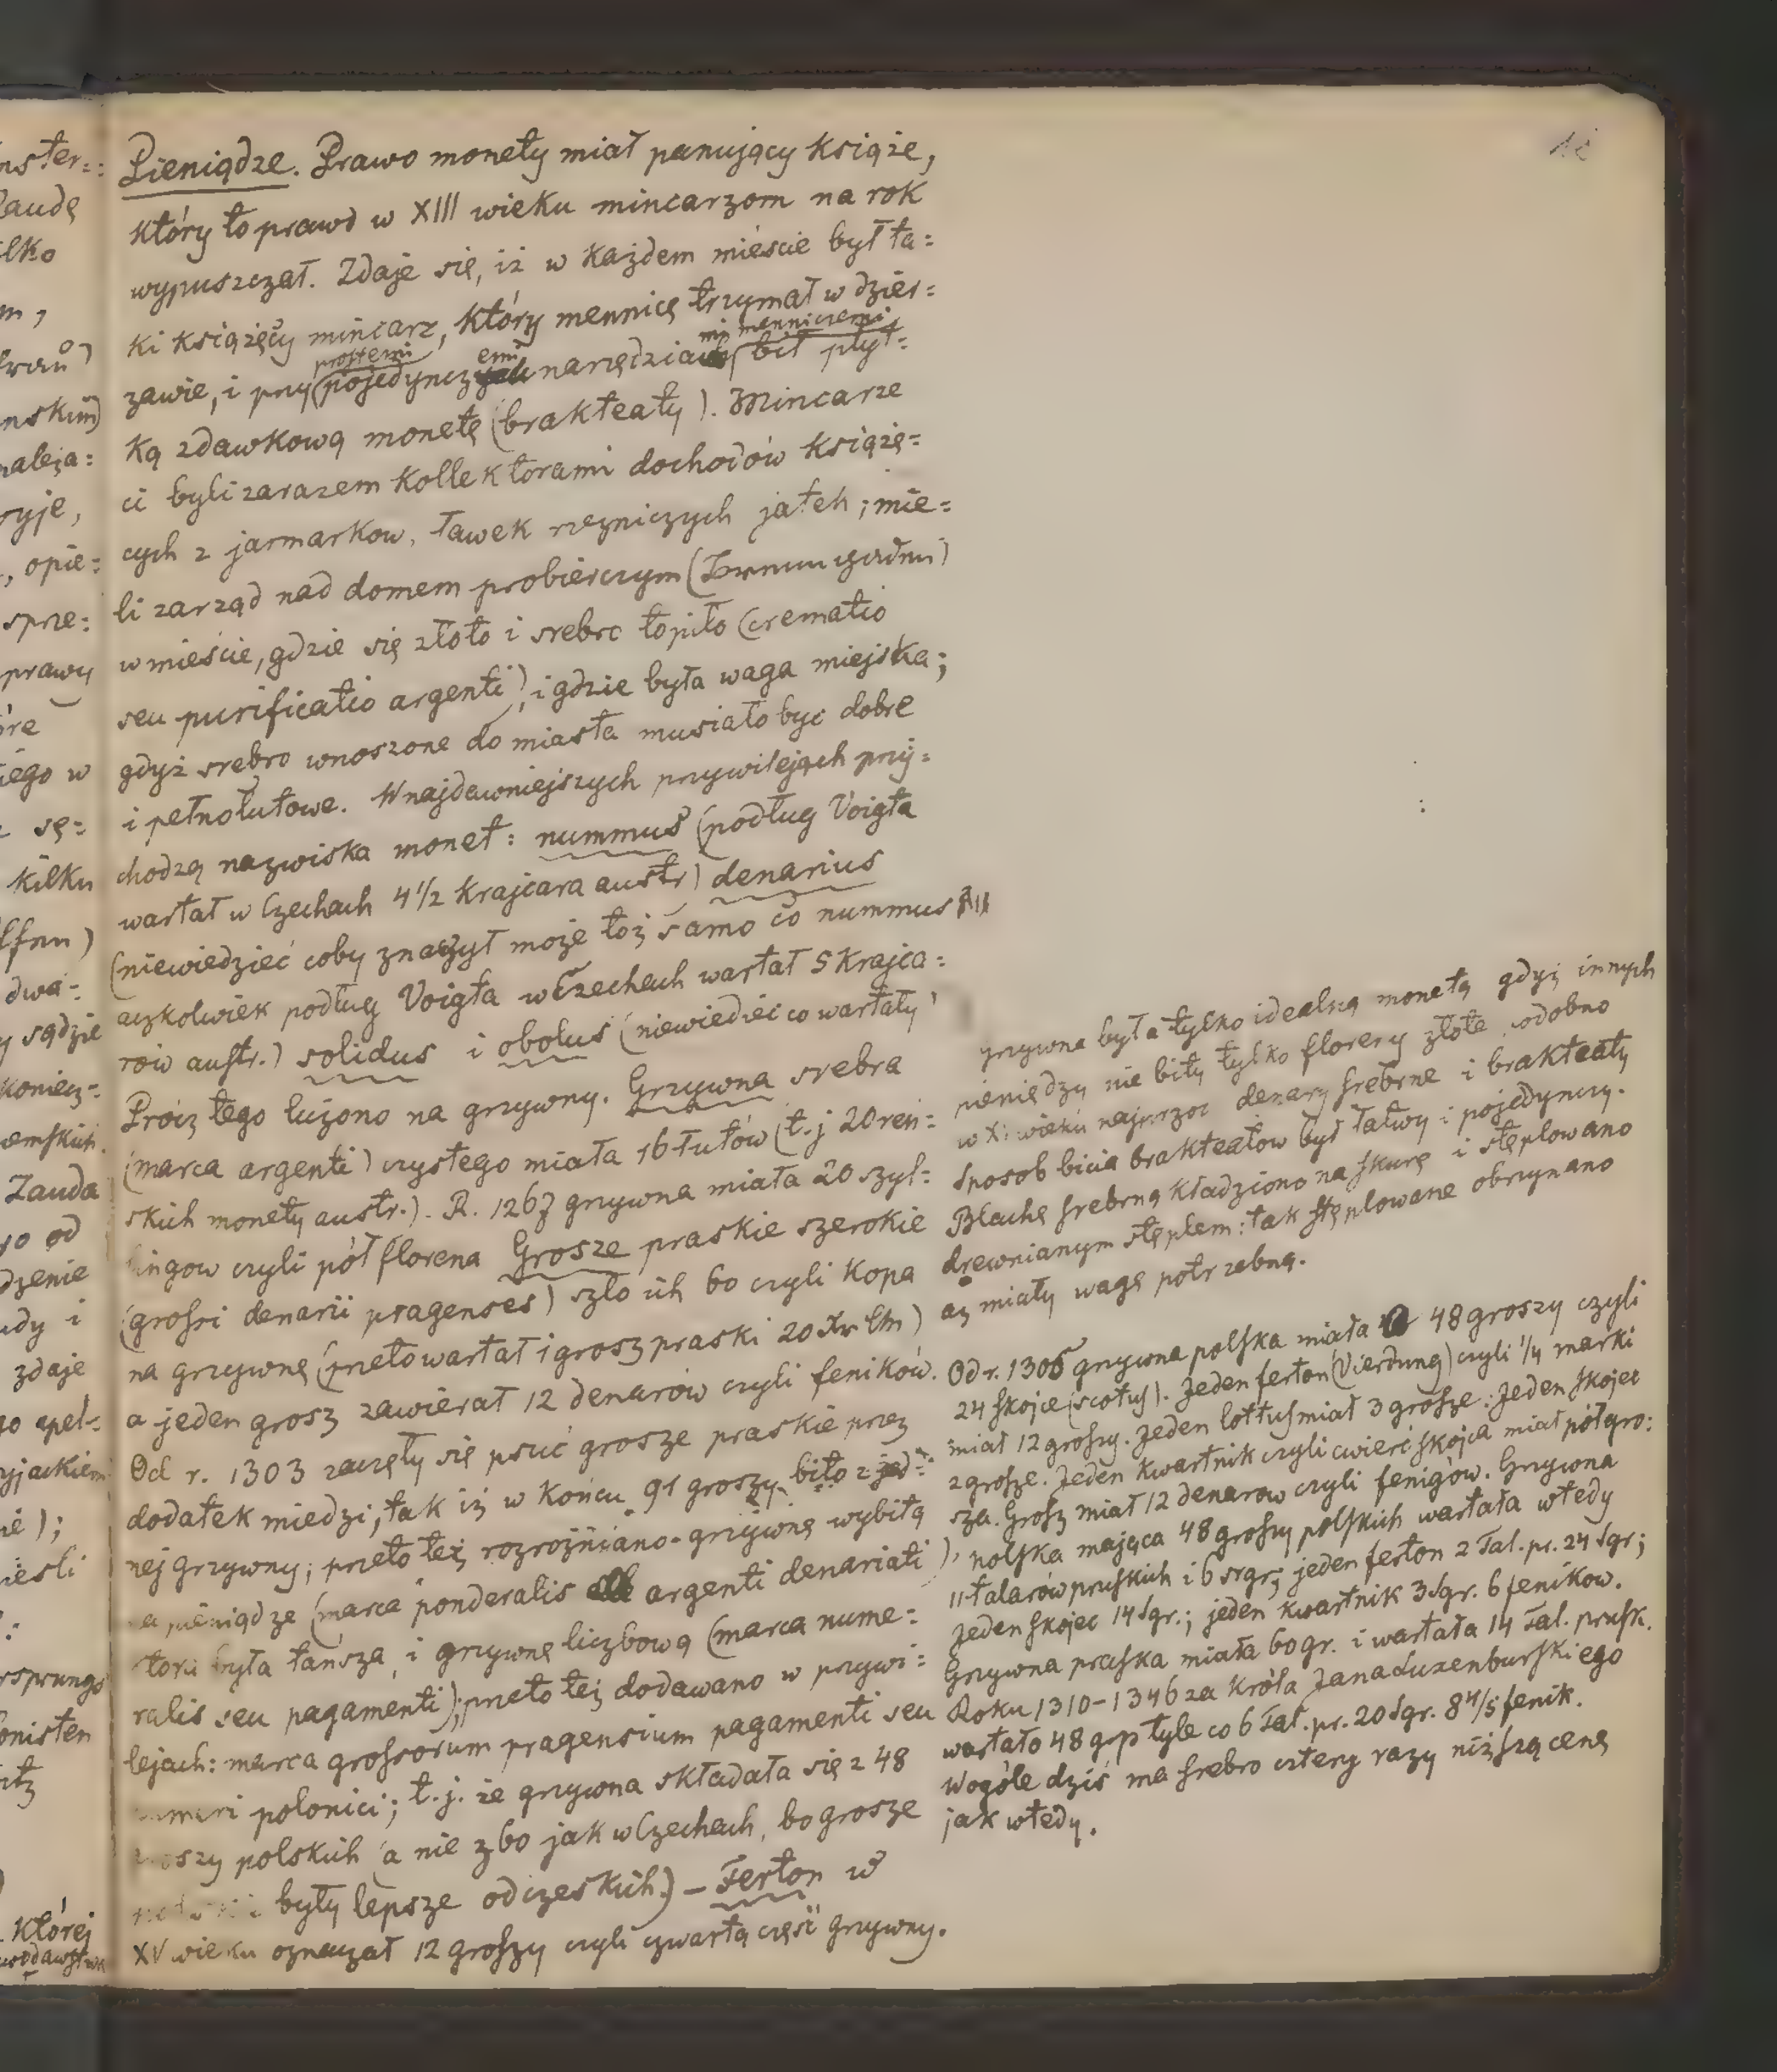 Pieniądze. Prawo monety miał panujący książe,
który to prawo w XIII wieku mincarzom na rok
wypuszczał. Zdaje się, iż w każdem mieście był ta=
ki książęcy mincarz, który mennicę trzymał w dzier=
zawie, i przy (pojedynczemi prostemi narzędziami menniczemi bił płyt=
ką zdawkową monetę (brakteaty). Mincarze
ci byli zarazem kollektorami dochodów książę=
cych z jarmarkow, ławek rzezniczych jatek; mie=
li zarząd nad domem probierczym
w mieście, gdzie się złoto i srebro topiło (crematio
seu purificatio argenti), i gdzie była waga miejska;
gdyż srebro wnoszone do miasta musiało byc dobre
i pełnołutowe. W najdawniejszych przywilejach przy=
chodzą nazwiska monet: nummus (podług Voigta
wartał w Czechach 4 1/2 krajcara austr) denarius
(niewiedzieć coby znaczył może toż samo co nummus
aczkolwiek podług Voigta w Czechach wartał 5 krajca=
rów austr.) solidus i obolus (niewiedzieć co wartały)
Prócz tego liczono na grzywny. Grzywna srebra
(marca argenti) czystego miała 16 łutów (t.j 20 reń=
skich monety austr.). R. 1267 grzywna miała 20 szyl=
lingow czyli pół florena Grosze praskie szerokie
(grossi denarii pragenses) szło ich 60 czyli kopa
na grzywnę (przeto wartał 1 grosz praski 20 Xr CM)
a jeden grosz zawierał 12 denarów czyli feników.
Od r. 1303 zaczęły się psuć grosze praskie przez
dodatek miedzi, tak iż w końcu 91 groszy bito z jed=
nej grzywny; przeto też rozrożniano grzywnę wybitą
na pieniądze (marca ponderalis argenti denariati),
która była tańsza, i grzywnę liczbową (marca nume=
ralis seu pagamenti); przeto też dodawano w przywi=
lejach: marca grossorum pragensium pagamenti seu
numeri polonici; t.j. że grzywna składała się z 48
groszy polskich (a nie z 60 jak w Czechach, bo grosze
były lepsze od czeskich.) – Ferton w
XV wieku oznaczał 12 groszy czyli czwartą część grzywny.
grzywna była tylko idealną monetą gdyż innych
pieniędzy nie bity tylko floreny złote podobno
w XI wieku najprzod denary srebrne i brakteaty
Sposob bicia brakteatow był łatwy i pojedynczy.
Blachę srebrną kładziono na skurę i stęplowano
drewnianym stęplem: tak stęplowane obrzynano
aż miały wagę potrzebną.
Od r. 1305 grzywna polska miała 48 groszy czyli
24 skojce (scotus). Jeden ferton (Vierdung) czyli 1/4 marki
miał 12 groszy. Jeden lottus miał 3 grosze: Jeden skojec
2 grosze. Jeden kwartnik czyli cwierć skojca miał pół gro:
sza. Grosz miał 12 denarow czyli fenigów. Grzywna
polska mająca 48 groszy polskich wartała wtedy
11 talarów pruskich i 6 srgr; jeden ferton 2 Tal. pr. 24 Sgr;
jeden skojec 14 Sgr.; jeden kwartnik 3 Sgr. 6 fenikow.
Grzywna praska miała 60 gr. i wartała 14 Tal. prusk.
Roku 1310–1346 za króla Jana Luxenburskiego
wartało 48 grp tyle co 6 Tal. pr. 20 Sgr. 8 4/5 fenik.
Wogóle dziś ma srebro cztery razy niższą cenę
jak wtedy.